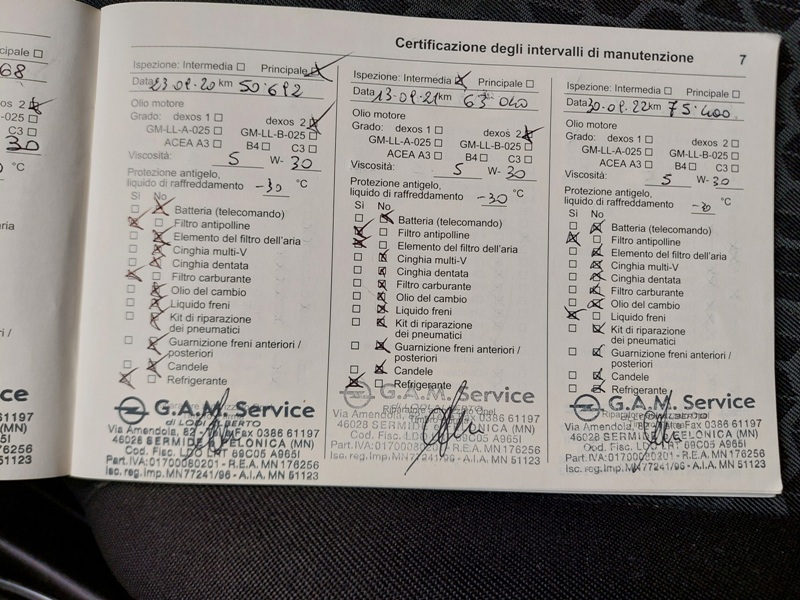 Certificazione degli intervalli di manutenzione 7
cipale
68
exos 2
025
C3
30
°C
ria
ri /
ice
61197
(MN)
6256
1123
Ispezione: Intermedia Principale
Data 23-09-20 km 50.692
Olio motore
Grado: dexos 1 dexos 2
GM-LL-A-025 GM-LL-B-025
ACEA A3 B4 C3
Viscosità: 5 W- 30
Protezione antigelo,
liquido di raffreddamento -30 °C
Si No
Batteria (telecomando)
Filtro antipolline
Elemento del filtro dell'aria
Cinghia multi-V
Cinghia dentata
Filtro carburante
Olio del cambio
Liquido freni
Kit di riparazione
dei pneumatici
Guarnizione freni anteriori /
posteriori
Candele
Refrigerante
G.A.M. Service
di LODI ALBERTO
Via Amendola, 82 Fax 0386 61197
46028 SERMIDE FELONICA (MN)
Cod. Fisc. LDO LRT 69C05 A965I
Part.IVA:01700080201 - R.E.A. MN 176256
Isc. reg.Imp. MN77241/96 - A.I.A. MN 51123
Ispezione: Intermedia Principale
Data 13-09-21 km 63.040
Olio motore
Grado: dexos 1 dexos 2
GM-LL-A-025 GM-LL-B-025
ACEA A3 B4 C3
Viscosità: 5 W- 30
Protezione antigelo,
liquido di raffreddamento -30 °C
Si No
Batteria (telecomando)
Filtro antipolline
Elemento del filtro dell'aria
Cinghia multi-V
Cinghia dentata
Filtro carburante
Olio del cambio
Liquido freni
Kit di riparazione
dei pneumatici
Guarnizione freni anteriori /
posteriori
Candele
Refrigerante
G.A.M. Service
Riparatore Opel
Via Amendola, Fax 0386 61197
46028 SERMIDE FELONICA (MN)
Cod. Fisc. 69C05 A965I
Part.IVA:01700080201 - R.E.A. MN 176256
Isc. reg.Imp. MN77241/96 - A.I.A. MN 51123
Ispezione: Intermedia Principale
Data 30-09-22 km 75.400
Olio motore
Grado: dexos 1 dexos 2
GM-LL-A-025 GM-LL-B-025
ACEA A3 B4 C3
Viscosità: 5 W- 30
Protezione antigelo,
liquido di raffreddamento °C
Si No
Batteria (telecomando)
Filtro antipolline
Elemento del filtro dell'aria
Cinghia multi-V
Cinghia dentata
Filtro carburante
Olio del cambio
Liquido freni
Kit di riparazione
dei pneumatici
Guarnizione freni anteriori /
posteriori
Candele
Refrigerante
G.A.M. Service
Via Amendola, Fax 0386 61197
46028 SERMIDE FELONICA (MN)
Cod. Fisc. 69C05 A965I
Part.IVA:01700080201 - R.E.A. MN 176256
Isc. reg.Imp. MN77241/96 - A.I.A. MN 51123